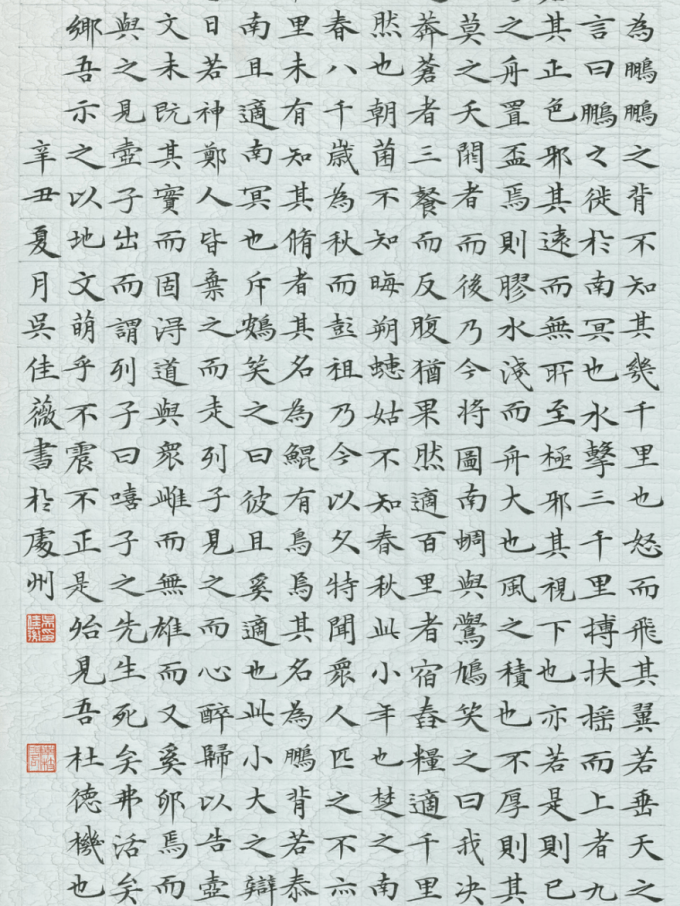 為鵬鵬之背不知其幾千里也怒而飛其翼若垂天之
言曰鵬之徙於南冥也水擊三千里摶扶搖而上者九
其正色邪其遠而無所至極邪其視下也亦若是則已
之舟置盃焉則膠水淺而舟大也風之積也不厚則其
莫之夭閼者而後乃今將圖南蜩與鷽鳩笑之曰我决
莽蒼者三餐而反腹猶果然適百里者宿舂糧適千里
然也朝菌不知晦朔蟪姑不知春秋此小年也楚之南
春八千歲為秋而彭祖乃今以久特聞衆人匹之不亦
里未有知其脩者其名為鯤有鳥焉其名為鵬背若泰
南且適南冥也斥鴳笑之曰彼且奚適也此小大之辯
日若神鄭人皆棄之而走列子見之而心醉歸以告壺
文未既其實而固得道與衆雌而無雄而又奚卵焉而
與之見壺子出而謂列子曰嘻子之先生死矣弗活矣
鄉吾示之以地文萌乎不震不正是殆見吾杜德機也
辛丑夏月吳佳薇書於處州